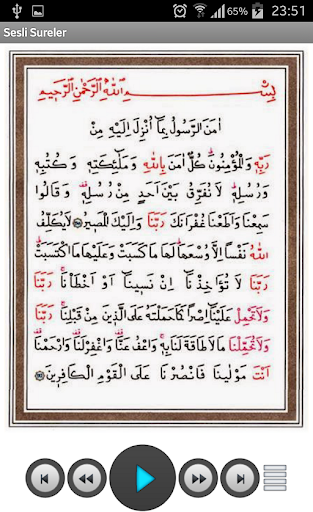 65% 23:51
Sesli Sureler
بِسْمِ اللّٰهِ الرَّحْمٰنِ الرَّحِيمِ
اٰمَنَ الرَّسُولُ بِمَا اُنْزِلَ اِلَيْهِ مِنْ
رَبِّهٖ وَالْمُؤْمِنُونَ كُلٌّ اٰمَنَ بِاللّٰهِ وَمَلٰٓئِكَتِهٖ وَكُتُبِهٖ
وَرُسُلِهٖ لَا نُفَرِّقُ بَيْنَ اَحَدٍ مِنْ رُسُلِهٖ وَقَالُوا
سَمِعْنَا وَاَطَعْنَا غُفْرَانَكَ رَبَّنَا وَاِلَيْكَ الْمَصِيرُ لَا يُكَلِّفُ
اللّٰهُ نَفْسًا اِلَّا وُسْعَهَا لَهَا مَا كَسَبَتْ وَعَلَيْهَا مَا اكْتَسَبَتْ
رَبَّنَا لَا تُؤَاخِذْنَا اِنْ نَسِينَا اَوْ اَخْطَأْنَا رَبَّنَا
وَلَا تَحْمِلْ عَلَيْنَا اِصْرًا كَمَا حَمَلْتَهُ عَلَى الَّذِينَ مِنْ قَبْلِنَا رَبَّنَا
وَلَا تُحَمِّلْنَا مَا لَا طَاقَةَ لَنَا بِهٖ وَاعْفُ عَنَّا وَاغْفِرْ لَنَا وَارْحَمْنَا
اَنْتَ مَوْلٰينَا فَانْصُرْنَا عَلَى الْقَوْمِ الْكَافِرِينَ